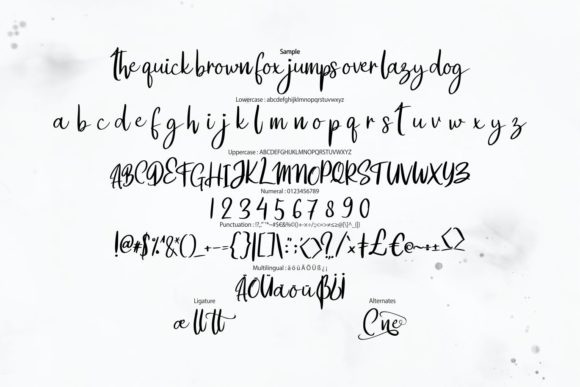 Sample
the quick brown fox jumps over lazy dog
Lowercase : abcdefghijklmnopqrstuvwxyz
a b c d e f g h i j k l m n o p q r s t u v w x y z
Uppercase : ABCDEFGHIJKLMNOPQRSTUVWXYZ
ABCDEFGHIJKLMNOPQRSTUVWXYZ
Numeral : 0123456789
1 2 3 4 5 6 7 8 9 0
Multilingual : ä ö ü Ä Ö Ü ß ¿ ¡
ÄÖÜäöüß¿¡
Ligature
æ ll tt
Alternates
C ne